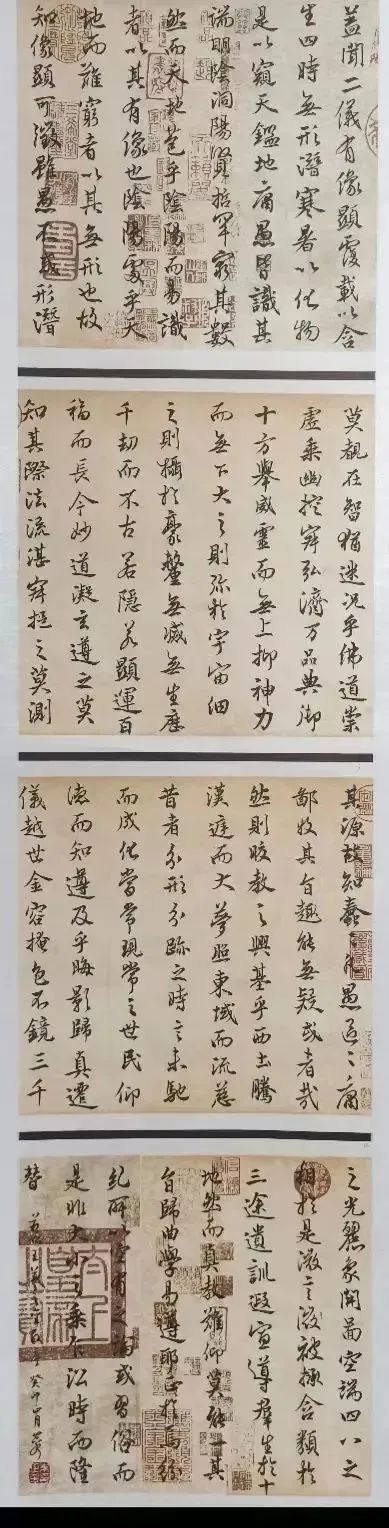 蓋聞二儀有像顯覆載以含
生四時無形潛寒暑以化物
是以窺天鑑地庸愚皆識其
端明陰洞陽賢哲罕窮其數
然而天地苞乎陰陽而易識
者以其有像也陰陽處乎天
地而難窮者以其無形也故
知像顯可徵雖愚不惑形潛
莫覩在智猶迷況乎佛道崇
虛乘幽控寂弘濟万品典御
十方舉威靈而無上抑神力
而無下大之則弥於宇宙細
之則攝於豪釐無滅無生歷
千劫而不古若隱若顯運百
福而長今妙道凝玄遵之莫
知其際法流湛寂挹之莫測
其源故知蠢〻凡愚區〻庸
鄙投其旨趣能無疑或者哉
然則皎教之興基乎西土騰
漢庭而大夢照東域而流慈
昔者分形分跡之時言未馳
而成化當常現常之世民仰
德而知遵及乎晦影歸真遷
儀越世金容掩色不鏡三千
之光麗象開圖空端四八之
相於是微言被拯含類於
三途遺訓遐宣導群生於十
地然而真教難仰莫能一其
旨歸曲學易遵耶正於焉紛
糺所以空有之論或習俗而
是非大小之乘乍沿時而隆
替 王羲之 癸卯